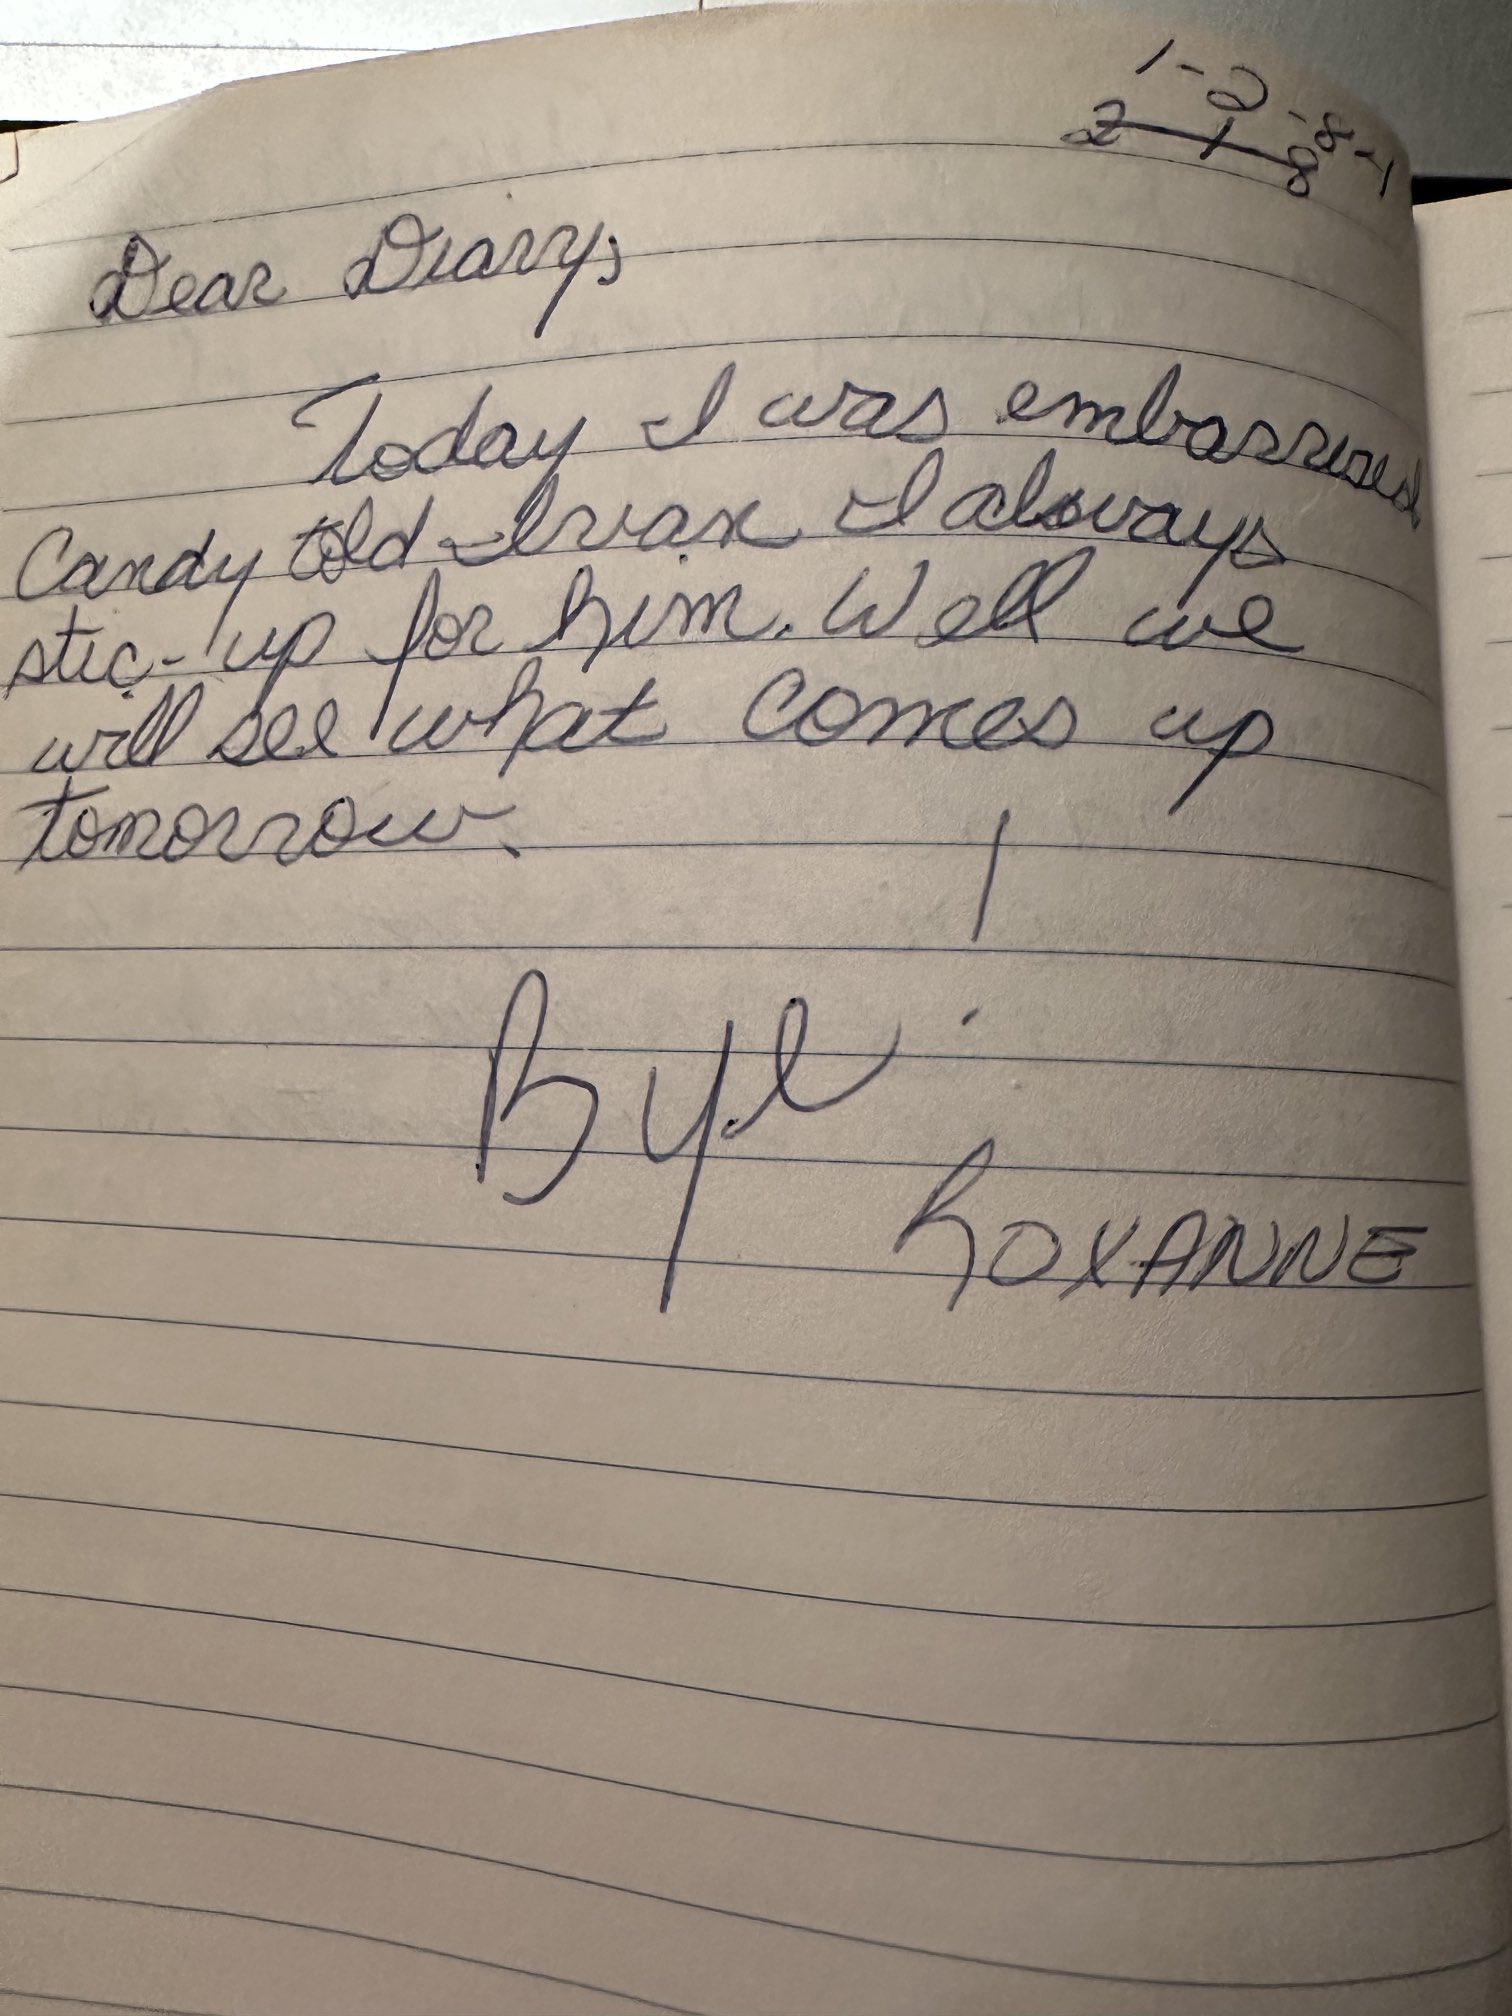 1-2-87
2 1 8
Dear Diary,
Today I was embarrised
Candy told Ivan I always
stic-up for him. Well we
will see what comes up
tomorrow.
Bye!
ROXANNE